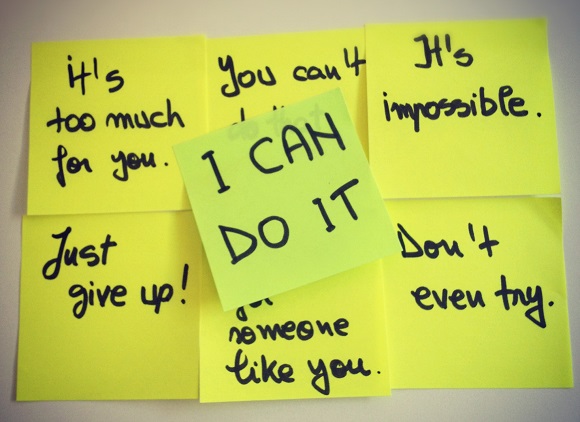 it's
too much
for you.
You can't
do that
It's
impossible.
I CAN
DO IT
Just
give up!
for
someone
like you.
Don't
even try.